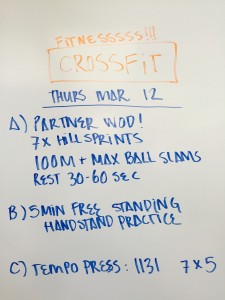 FITNESSSSS!!!
CROSSFIT
THURS MAR 12
A) PARTNER WOD!
7X HILL SPRINTS
100M + MAX BALL SLAMS
REST 30-60 SEC
B) 5 MIN FREE STANDING
HANDSTAND PRACTICE
C) TEMPO PRESS: 1131 7X5